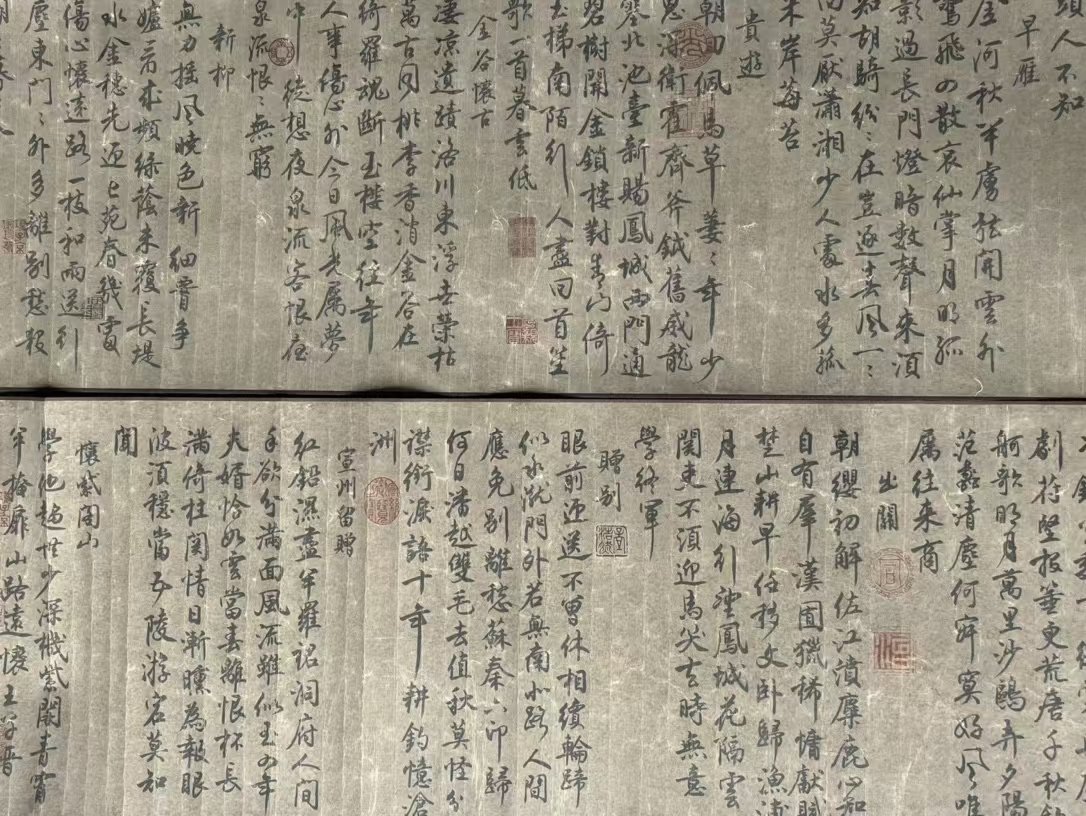 頭人不知
早雁
金河秋半虜弦開雲外
驚飛四散哀仙掌月明孤
影過長門燈暗數聲來須
知胡騎紛〻在豈逐春風一〻
回莫厭瀟湘少人處水多菰
米岸莓苔
貴遊
朝回佩馬草萋〻年少
恩深衛霍齊斧鉞舊威龍
塞北池臺新賜鳳城西門通
碧樹開金鎖樓對青山倚
玉梯南陌行人盡回首笙
歌一首暮雲低
金谷懷古
淒涼遺蹟洛川東浮世榮枯
萬古同桃李香消金谷在
綺羅魂斷玉樓空往年
人事傷心外今日風光屬夢
中徒想夜泉流客恨夜
泉流恨〻無窮
新柳
無力搖風曉色新細腰爭
妒看來頻綠蔭未覆長堤
水金穗先迎上苑春幾處
傷心懷遠路一枝和雨送行
塵東門〻外多離別愁殺
劇苻堅報箠更荒唐千秋釣
舸歌明月萬里沙鷗弄夕陽
范蠡清塵何寂寞好風唯
屬往來商
出關
朝纓初解佐江濆麋鹿心知
自有羣漢囿獵稀慵獻賦
楚山耕早任移文卧歸漁浦
月連海行望鳳城花隔雲
關吏不須迎馬笑去時無意
學終軍
贈別
眼前迎送不曾休相續輪蹄
似水流門外若無南北路人間
應免別離愁蘇秦六印歸
何日潘岳雙毛去值秋莫怪分
襟銜淚語十年耕釣憶滄
洲
宣州留贈
紅鉛濕盡半羅裙洞府人間
手欲分滿面風流雖似玉四年
夫婿恰如雲當春離恨杯長
滿倚柱關情日漸曛為報眼
波須穩當五陵游宕莫知
聞
懷紫閣山
學他趨世少深機紫閣青霄
半掩扉山路遠懷王子晉